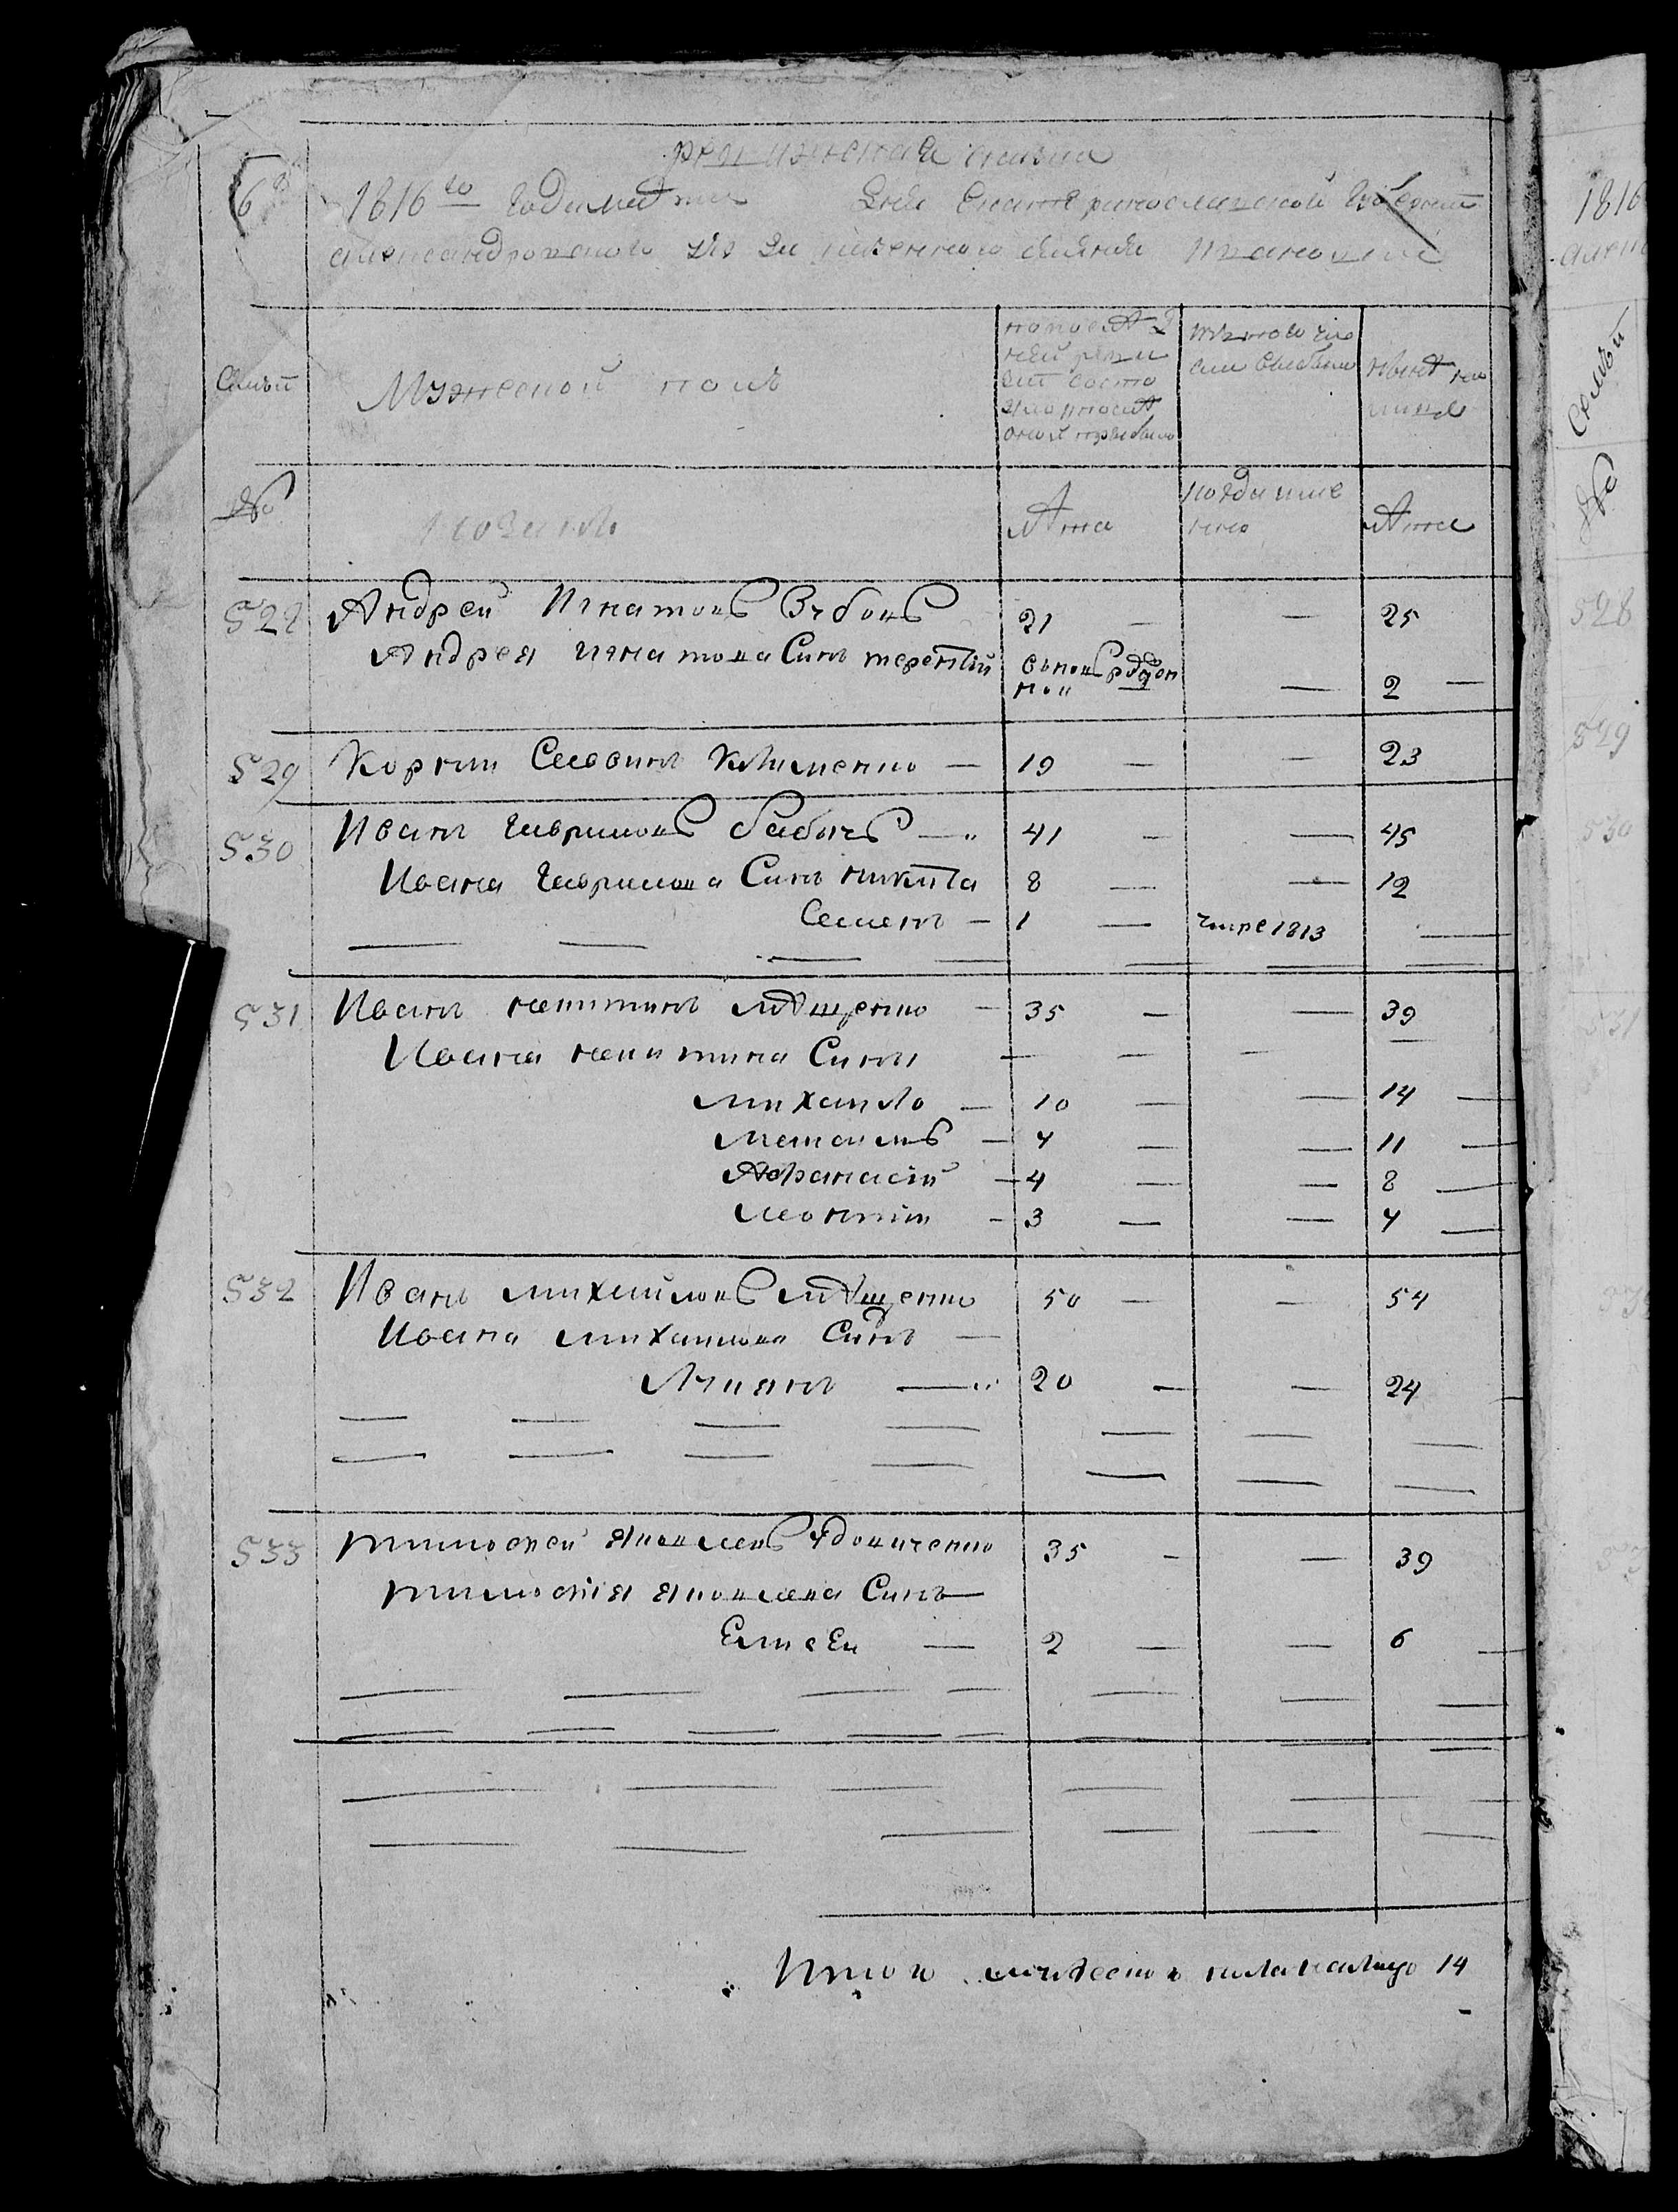 ревижская сказка
68
1816го года Маия дня Екатеринославской Губернии
александровского уезда казенного селения
Семьи
Мужеской полъ
по последней ревизии состояло и после оной прибыло
изъ того числа выбыло
ныне на лицо
№
козаковъ
Лета
когда именно
Лета
528 Андрей Игнатовъ Зубовъ 21 — — 25
Андрея игнатова Синъ терентий вновь рожденной — 2 —
529 Корнии Савинъ Клименко — 19 — — 23
530 Иванъ Гавриловъ бабичъ — 41 — — 45
Ивана Гаврилова Синъ никита 8 — — 12
Семенъ — 1 — умре 1813 —
531 Иванъ никитинъ лѣщенко — 35 — — 39
Ивана никитина Сини — — — —
михаило — 10 — — 14 —
максимъ — 7 — — 11 —
Афанасий — 4 — — 8 —
леонтии — 3 — — 7 —
532 Иванъ михаиловъ лѣщенко 50 — — 54
Ивана михаилова Синъ —
Лукянъ — 20 — — 24
533 тимофеи яковлевъ Удовиченко 35 — — 39
тимофия яковлева Синъ
Елисеи — 2 — — 6
Итого мужеска пола налицо 14
1816
Семьи
№
528
529
530
531